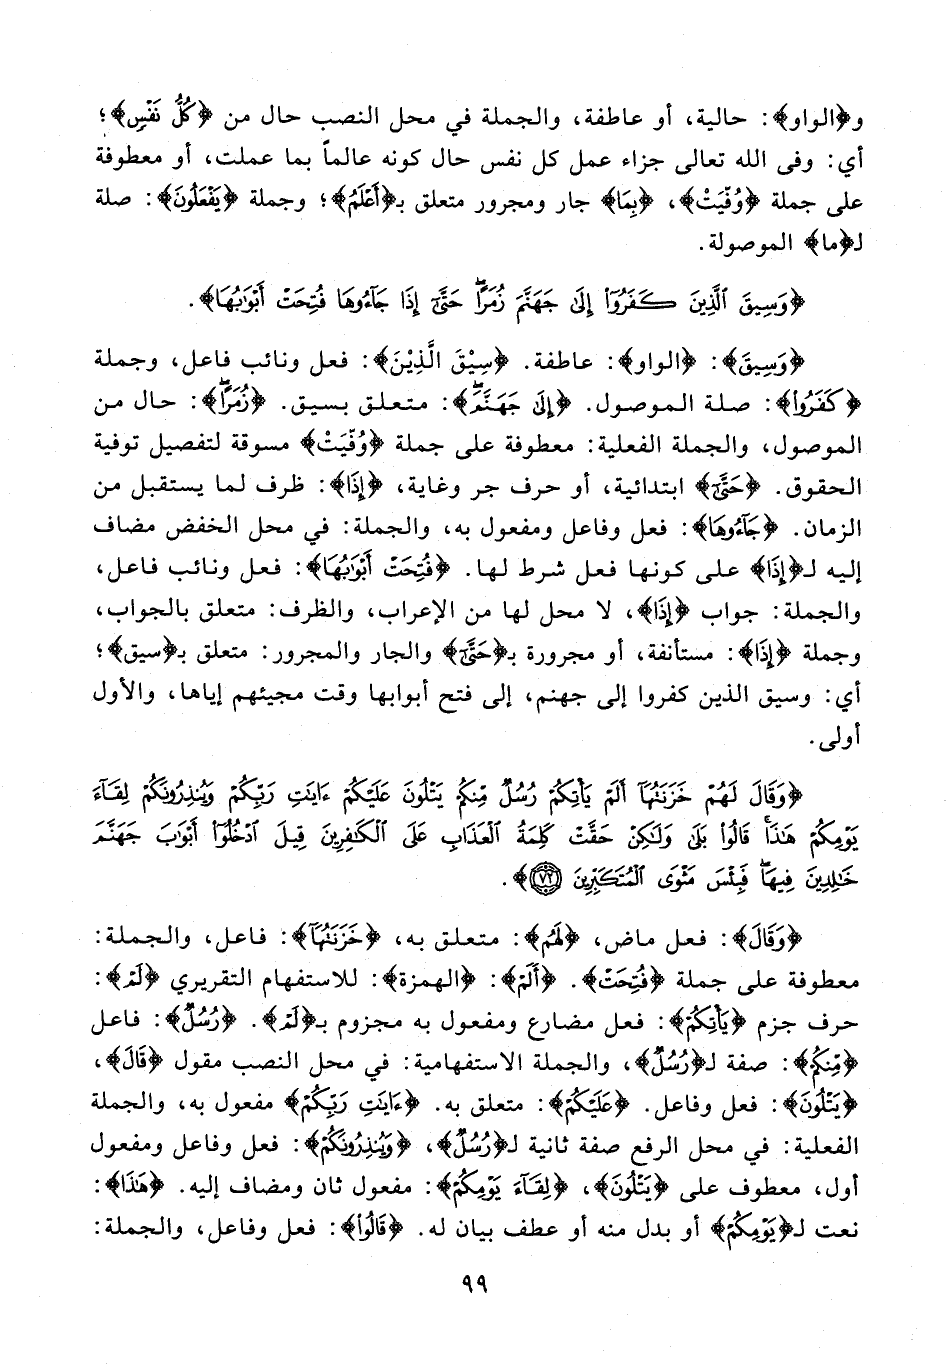 و﴿الواو﴾: حالية، أو عاطفة، والجملة في محل النصب حال من ﴿كُلُّ نَفْسٍ﴾؛
أي: وفى الله تعالى جزاء عمل كل نفس حال كونه عالماً بما عملت، أو معطوفة
على جملة ﴿وُفِّيَتْ﴾، ﴿بِمَا﴾ جار ومجرور متعلق بـ﴿أَعْلَمُ﴾؛ وجملة ﴿يَفْعَلُونَ﴾: صلة
لـ﴿ما﴾ الموصولة.
﴿وَسِيقَ ٱلَّذِينَ كَفَرُوٓاْ إِلَىٰ جَهَنَّمَ زُمَرًاۖ حَتَّىٰٓ إِذَا جَآءُوهَا فُتِحَتْ أَبْوَٰبُهَا﴾.
﴿وَسِيقَ﴾: ﴿الواو﴾: عاطفة. ﴿سِيْقَ الَّذِيْنَ﴾: فعل ونائب فاعل، وجملة
﴿كَفَرُوٓاْ﴾: صلة الموصول. ﴿إِلَىٰ جَهَنَّمَ﴾: متعلق بسيق. ﴿زُمَرًاۖ﴾: حال من
الموصول، والجملة الفعلية: معطوفة على جملة ﴿وُفِّيَتْ﴾ مسوقة لتفصيل توفية
الحقوق. ﴿حَتَّىٰٓ﴾ ابتدائية، أو حرف جر وغاية، ﴿إِذَا﴾: ظرف لما يستقبل من
الزمان. ﴿جَآءُوهَا﴾: فعل وفاعل ومفعول به، والجملة: في محل الخفض مضاف
إليه لـ﴿إِذَا﴾ على كونها فعل شرط لها. ﴿فُتِحَتْ أَبْوَٰبُهَا﴾: فعل ونائب فاعل،
والجملة: جواب ﴿إِذَا﴾، لا محل لها من الإعراب، والظرف: متعلق بالجواب،
وجملة ﴿إِذَا﴾: مستأنفة، أو مجرورة بـ﴿حَتَّىٰٓ﴾ والجار والمجرور: متعلق بـ﴿سيق﴾؛
أي: وسيق الذين كفروا إلى جهنم، إلى فتح أبوابها وقت مجيئهم إياها، والأول
أولى.
﴿وَقَالَ لَهُمْ خَزَنَتُهَآ أَلَمْ يَأْتِكُمْ رُسُلٌ مِّنكُمْ يَتْلُونَ عَلَيْكُمْ ءَايَٰتِ رَبِّكُمْ وَيُنذِرُونَكُمْ لِقَآءَ
يَوْمِكُمْ هَٰذَاۚ قَالُواْ بَلَىٰ وَلَٰكِنْ حَقَّتْ كَلِمَةُ ٱلْعَذَابِ عَلَى ٱلْكَٰفِرِينَ قِيلَ ٱدْخُلُوٓاْ أَبْوَٰبَ جَهَنَّمَ
خَٰلِدِينَ فِيهَاۖ فَبِئْسَ مَثْوَى ٱلْمُتَكَبِّرِينَ ٧٢﴾.
﴿وَقَالَ﴾: فعل ماض، ﴿لَهُمْ﴾: متعلق به، ﴿خَزَنَتُهَآ﴾: فاعل، والجملة:
معطوفة على جملة ﴿فُتِحَتْ﴾. ﴿أَلَمْ﴾: ﴿الهمزة﴾: للاستفهام التقريري ﴿لَمْ﴾:
حرف جزم ﴿يَأْتِكُمْ﴾: فعل مضارع ومفعول به مجزوم بـ﴿لَمْ﴾. ﴿رُسُلٌ﴾: فاعل
﴿مِّنكُمْ﴾: صفة لـ﴿رُسُلٌ﴾، والجملة الاستفهامية: في محل النصب مقول ﴿قَالَ﴾،
﴿يَتْلُونَ﴾: فعل وفاعل. ﴿عَلَيْكُمْ﴾: متعلق به. ﴿ءَايَٰتِ رَبِّكُمْ﴾ مفعول به، والجملة
الفعلية: في محل الرفع صفة ثانية لـ﴿رُسُلٌ﴾، ﴿وَيُنذِرُونَكُمْ﴾: فعل وفاعل ومفعول
أول، معطوف على ﴿يَتْلُونَ﴾، ﴿لِقَآءَ يَوْمِكُمْ﴾: مفعول ثان ومضاف إليه. ﴿هَٰذَا﴾:
نعت لـ﴿يَوْمِكُمْ﴾ أو بدل منه أو عطف بيان له. ﴿قَالُواْ﴾: فعل وفاعل، والجملة:
٩٩